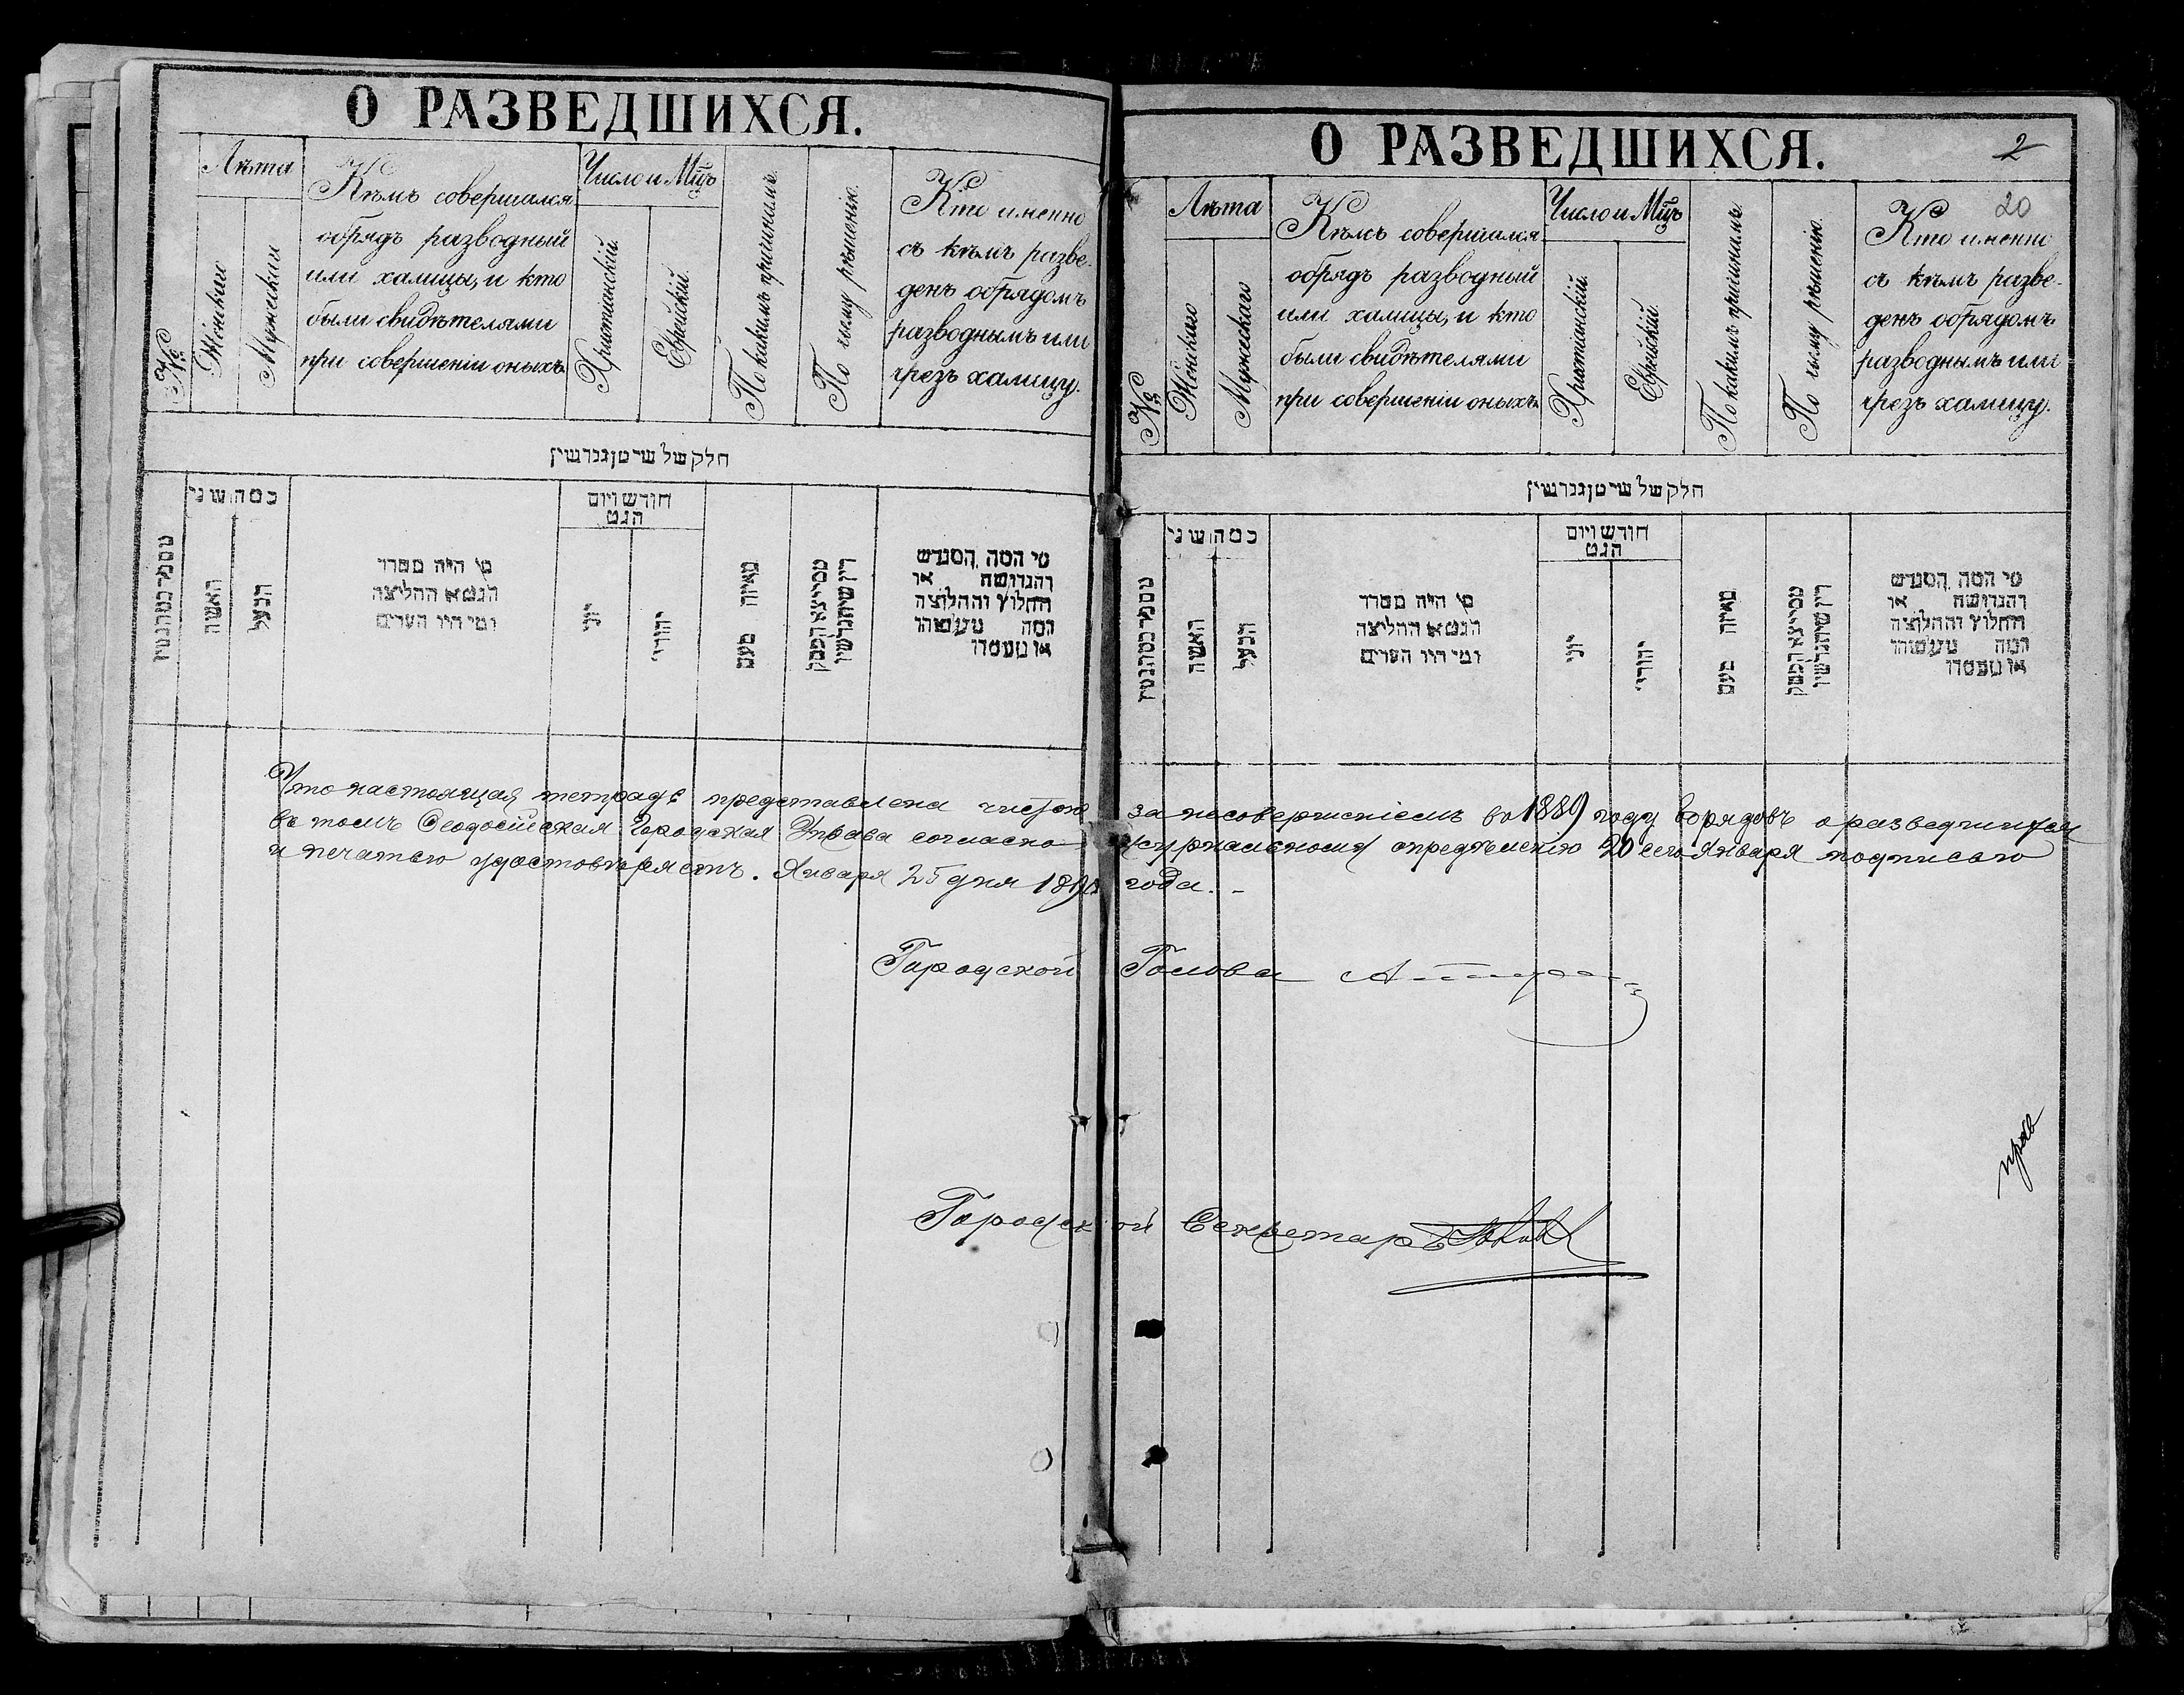 О РАЗВЕДШИХСЯ.
№
Лѣта
Женскаго
Мужескаго
Кѣмъ совершался
обрядъ разводный
или халицы, и кто
были свидѣтелями
при совершеніи оныхъ.
Число и Мцъ
Христіанскій.
Еврейскій.
По какимъ причинамъ.
По чьему рѣшенію.
Кто именно
съ кѣмъ разве-
денъ обрядомъ
разводнымъ или
чрезъ халицу.
חלק של
כמה שני
האשה
הבעל
מי היה מסדר
הגט או החליצה
ומי היו העדים
חודש ויום
הגט
יוני
יהודי
מאיזה טעם
מי המה המגרש
והגרושה או
החלוץ והחלוצה
ומה מעשיהו
או מעמדו
О РАЗВЕДШИХСЯ.
2
20
№
Лѣта
Женскаго
Мужескаго
Кѣмъ совершался
обрядъ разводный
или халицы, и кто
были свидѣтелями
при совершеніи оныхъ.
Число и Мцъ
Христіанскій.
Еврейскій.
По какимъ причинамъ.
По чьему рѣшенію.
Кто именно
съ кѣмъ разве-
денъ обрядомъ
разводнымъ или
чрезъ халицу.
חלק של
כמה שני
האשה
הבעל
מי היה מסדר
הגט או החליצה
ומי היו העדים
חודש ויום
הגט
יוני
יהודי
מאיזה טעם
מי המה המגרש
והגרושה או
החלוץ והחלוצה
ומה מעשיהו
או מעמדו
Что настоящая тетрадь представлена чистою за несовершеніемъ въ 1889 году обрядовъ о разведшихся
въ томъ Ѳеодосійская Городская Управа согласно журнальному опредѣленію 20 сего Января подписью
и печатью удостовѣряетъ. Января 25 дня 1890 года.
Городской Голова
Городской Секретарь